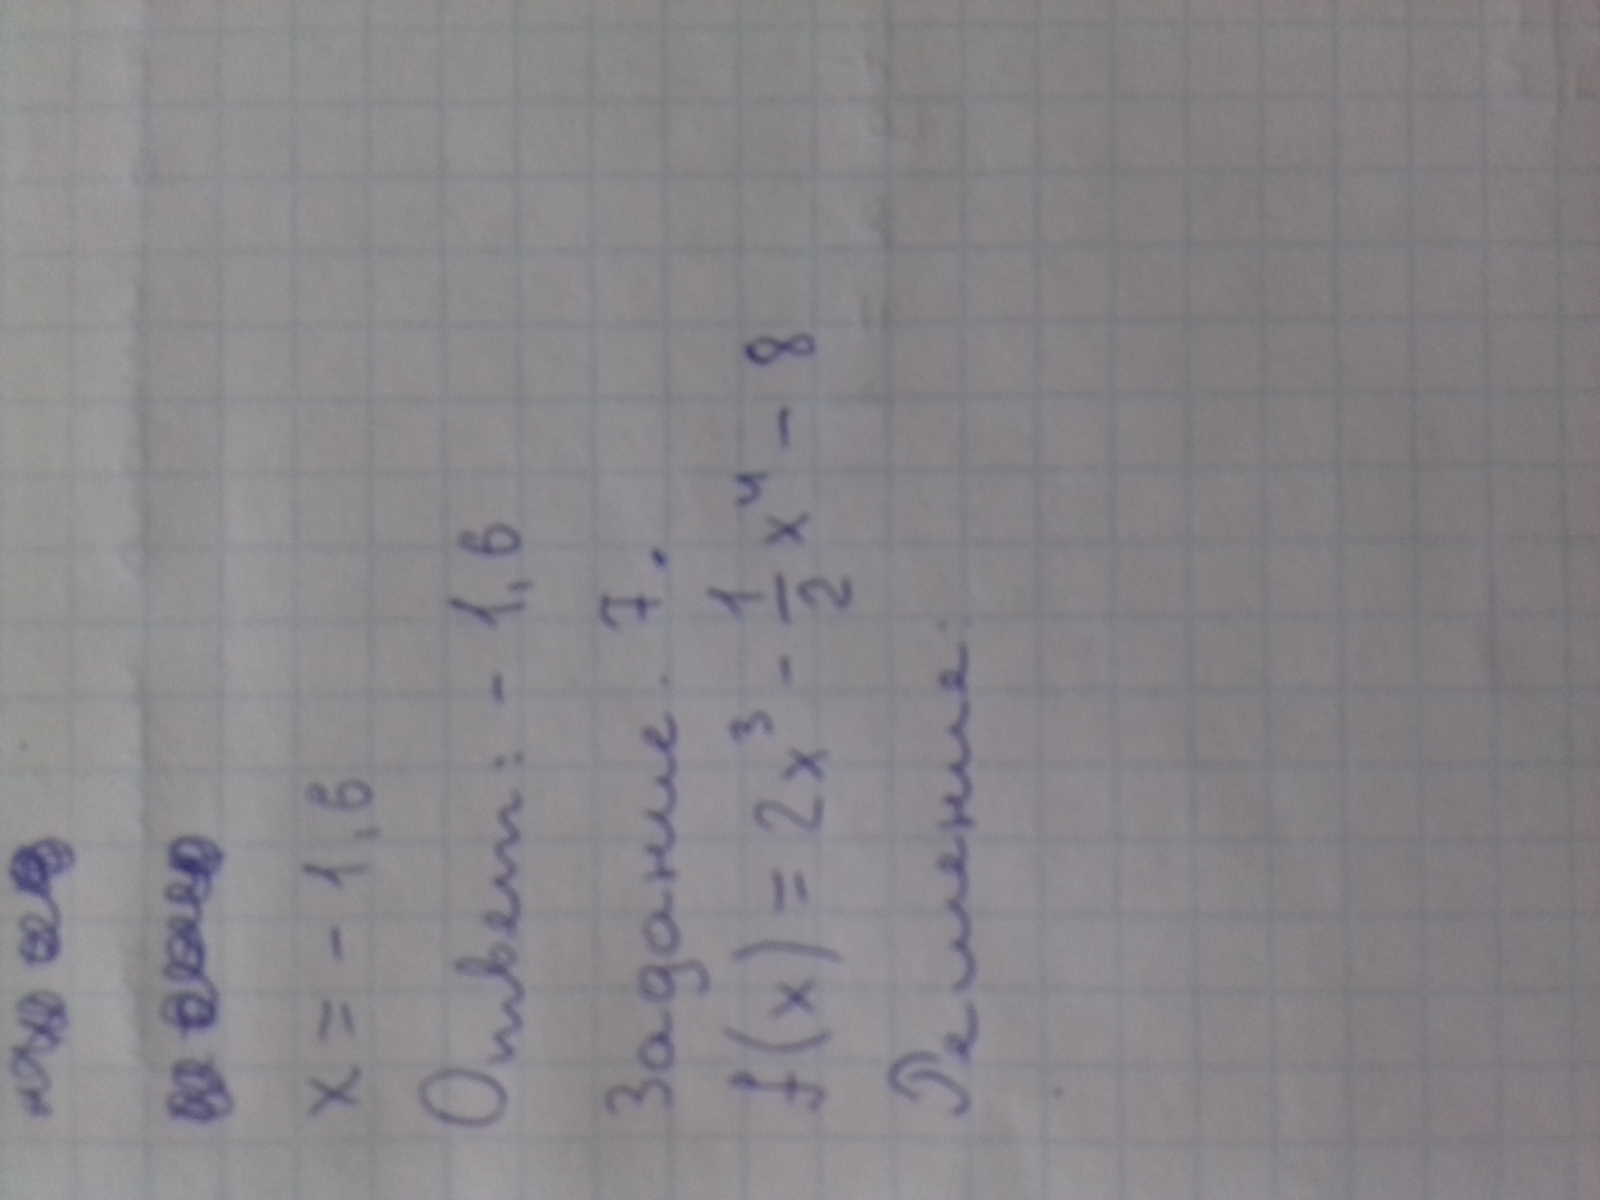 x = - 1,6
Ответ: - 1,6
Задание 7.
f(x) = 2x³ - 1/2 x⁴ - 8
Решение: